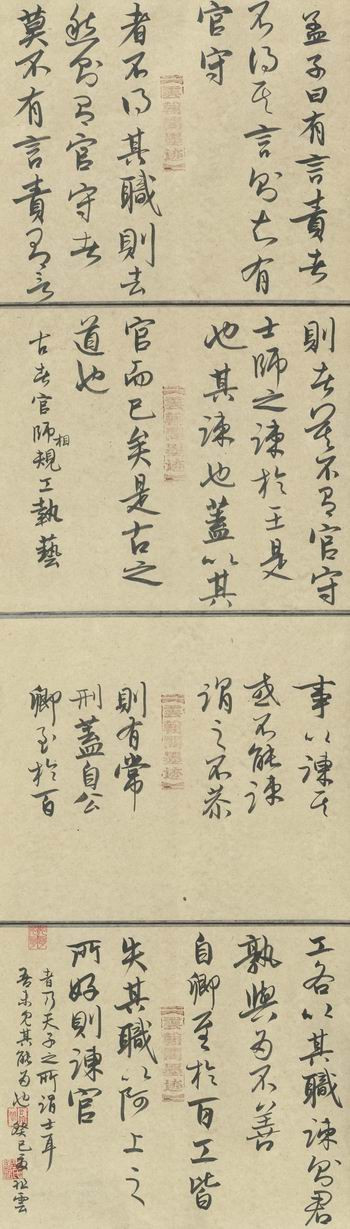 孟子曰有言責者
不得其言則去有
官守
者不得其職則去
然則有官守者
莫不有言責有言
則者莫不有官守
士師之諫於王是
也其諫也蓋以其
官而已矣是古之
道也
古者官師相規工執藝
事以諫其
或不能諫
謂之不恭
則有常
刑蓋自公
卿至於百
工各以其職諫則君
孰與為不善
自卿至於百工皆
失其職以阿上之
所好則諫官
者乃天子之所謂士耳
吾未見其能為也癸巳夏祖雲